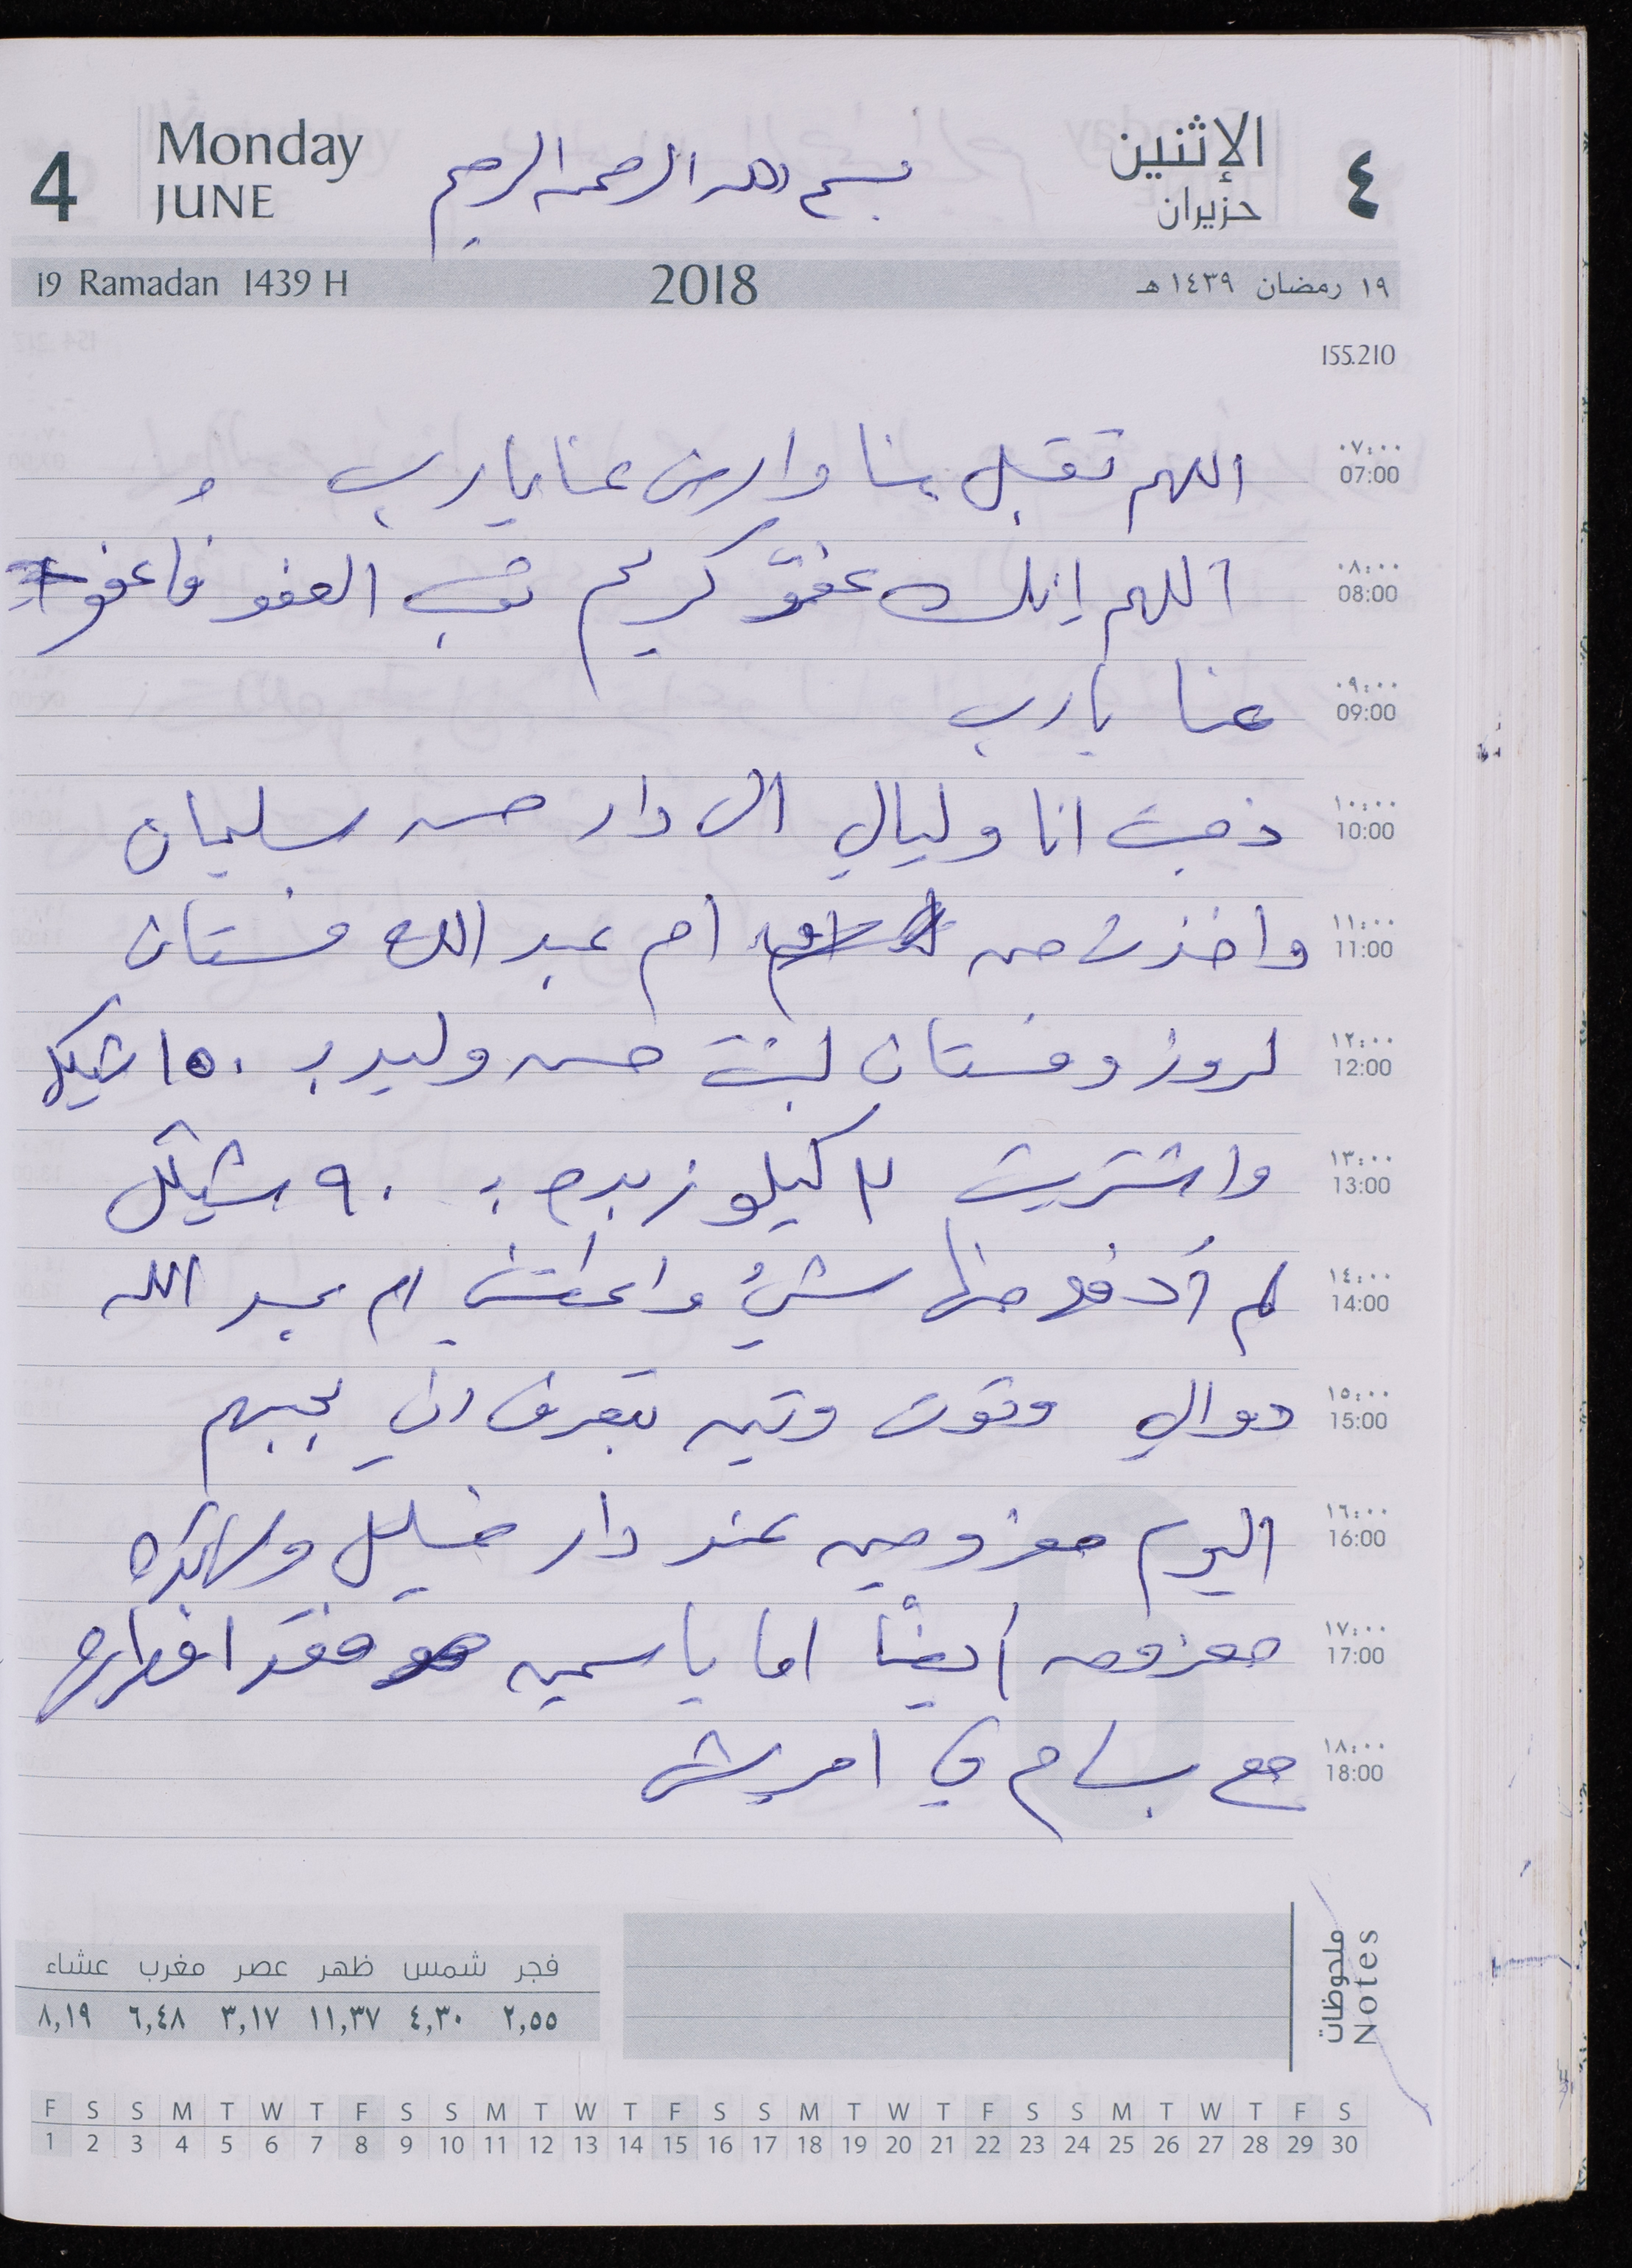 4 Monday JUNE
بسم الله الرحمن الرحيم
الإثنين حزيران ٤
19 Ramadan 1439 H 2018 ١٩ رمضان ١٤٣٩ هـ
155.210
٠٧:٠٠ 07:00 اللهم تقبل منا وارض عنا يا رب
٠٨:٠٠ 08:00 اللهم إنك عفوّ كريم تحب العفو فاعفو
٠٩:٠٠ 09:00 عنا يا رب
١٠:٠٠ 10:00 ذهبت انا وليالي الى دار حسن سليمان
١١:٠٠ 11:00 واخذت من ام عبد الله فستان
١٢:٠٠ 12:00 لروز وفستان لبنت حسن وليد بـ ١٥٠ شيكل
١٣:٠٠ 13:00 واشتريت ٢ كيلو زبده بـ ٩٠ شيكل
١٤:٠٠ 14:00 لم أدفع منها شيُ واعطتني ام عبد الله
١٥:٠٠ 15:00 دوالي وتوت وتين بتعرف اني بحبهم
١٦:٠٠ 16:00 اليوم معزومين عند دار خليل
١٧:٠٠ 17:00 معزومه أيضًا اما ياسمين فقد افطارها
١٨:٠٠ 18:00 مع بسام في امريش
ملحوظات Notes
فجر شمس ظهر عصر مغرب عشاء
٢,٥٥ ٤,٣٠ ١١,٣٧ ٣,١٧ ٦,٤٨ ٨,١٩
F S S M T W T F S S M T W T F S S M T W T F S S M T W T F S
1 2 3 4 5 6 7 8 9 10 11 12 13 14 15 16 17 18 19 20 21 22 23 24 25 26 27 28 29 30